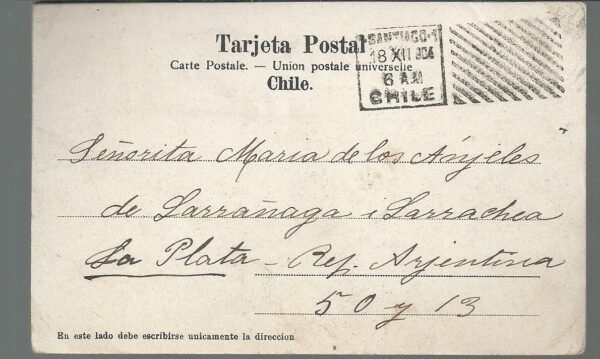 Tarjeta Postal
Carte Postale. — Union postale universelle
Chile.
SANTIAGO-1
18 XII 904
6 AM
CHILE
Señorita Maria de los Anjeles
de Larrañaga i Larrachea
La Plata - Rep. Arjentina
50 y 13
En este lado debe escribirse unicamente la direccion